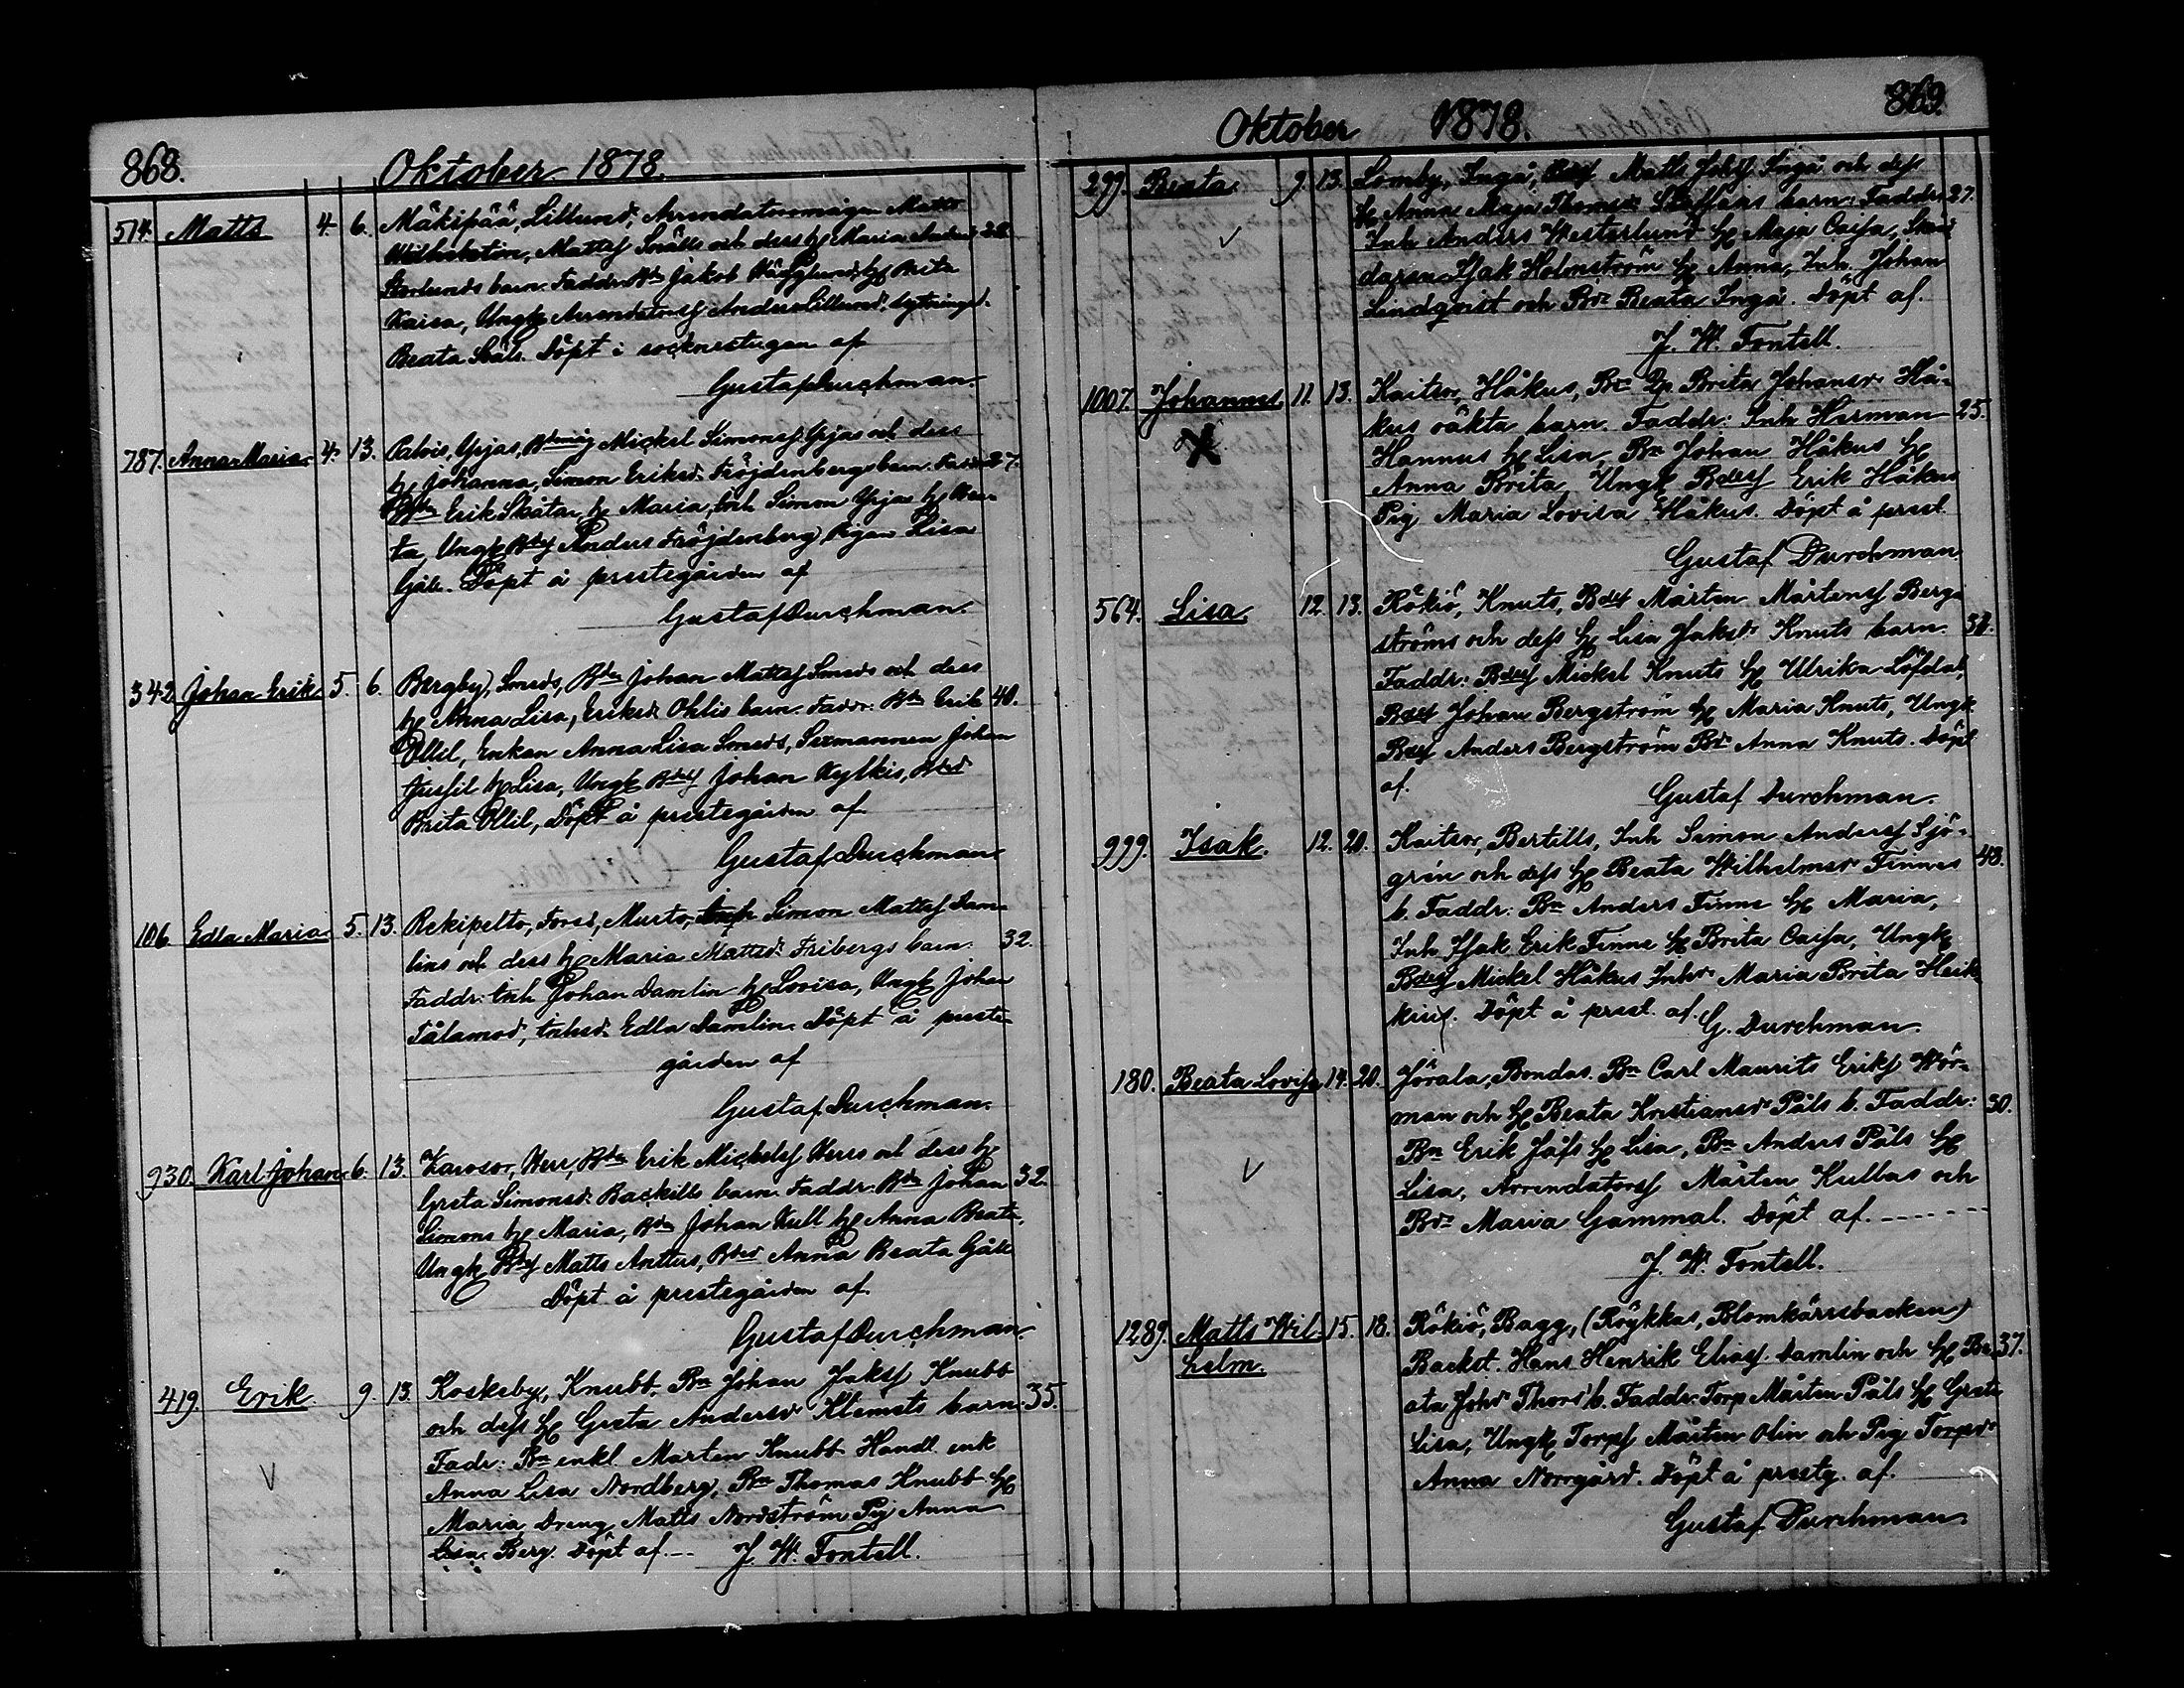 868.
Oktober 1878.
514. Matts 4. 6. Mäkipää, Lillund, Arrendatorsmågen Matts
Wilhelmstön, Mattsf Snälls och dess h Maria Anders 28.
Starlunds barn. Faddr. Bdn Jakob Hägglund, h Brita
Kaisa, Ungk Arrendatorsf Anders Lillund, hytninged.
Beata Skäls. Döpt i socknestugan af
Gustaf Durchman.
787. Anna Maria 4. 13. Palvis, Yrjas, Bdemåg Mickel Simonsf Yrjas och dess
h Johanna, Simon Eriksdr Fröjdenbergs barn. Faddr. 27.
Bdn Erik Skåtar, h Maria, Inh Simon Yrjas h Bea-
ta, Ungk Bdsf Anders Fröjdenberg, Pigan Lisa
Gåls. Döpt å prestegården af
Gustaf Durchman.
342. Johan Erik 5. 6. Bergby, Smeds, Bdn Johan Mattsf Smeds och dess
h Anna Lisa, Eriksdr Ohlis barn. Faddr. Bdn Erik 40.
Ollil, Enkan Anna Lisa Smeds, Sexmannen Johan
Jussil h Lisa, Ungk Bdsf Johan Kylkis, Bded
Brita Ollil, Döpt å prestegården af
Gustaf Durchman.
106. Edla Maria 5. 13. Rekipelto, Fors, Murto, Inh Simon Mattsf Dam-
lins och dess h Maria Mattsdr Fribergs barn. 32.
Faddr: Inh Johan Damlin h Lovisa, Ungk Johan
Tålamod, Inhsd. Edla Damlin. Döpt å preste-
gården af
Gustaf Durchman.
930. Karl Johan 6. 13. Karvsor, Werr, Bdn Erik Mickelsf Werrs och dess h
Greta Simonsd. Backills barn. Faddr. Bdn Johan 32.
Simons h Maria, Bdn Johan Kull h Anna Beata,
Ungk Bdsf Matts Anttus, Bded Anna Beata Gåls
Döpt å prestegården af
Gustaf Durchman.
419. Erik. 9. 13. Koskeby, Knubb. Bn Johan Jaksf Knubb
och dess h Greta Andersdr Klemets barn. 35.
Fadr: Bn enkl. Mårten Knubb Handl. enk
Anna Lisa Nordberg, Bn Thomas Knubb h
Maria, Dreng Matts Nordström Pig Anna
Lisa Berg. Döpt af.— J. W. Fontell.
869.
Oktober 1878.
299. Beata. 9. 13. Lomby, Ingå, Bdsf Matts Johsf Ingå och dess
h Anna Maja Thomsdr Staffans barn. Faddr: 27.
Inh Anders Westerlund h Maja Caisa, Skräd
daren Isak Holmström h Anna, Inh. Johan
Lindqvist och Bdr Beata Ingå. Döpt af.
J. W. Fontell.
1007. Johannes 11. 13. Kaitsor, Håkus, Bdr Dp Brita Johansdr Hå-
kus oäkta barn. Faddr: Inh Herman 25.
Hannus h Lisa, Bn Johan Håkus h
Anna Brita, Ungk Bdesf Erik Håkus
Pig Maria Lovisa Håkus. Döpt å prest.
Gustaf Durchman
564. Lisa. 12. 13. Rökiö, Knuts, Bdsf Mårten Mårtensf Berg-
ströms och dess h Lisa Jaksdr Knuts barn. 38.
Faddr: Bdesf Mickel Knuts h Ulrika Löfdal,
Bdsf Johan Bergström h Maria Knuts, Ungk
Bdsf Anders Bergström Bdr Anna Knuts. Döpt
af.
Gustaf Durchman.
999. Isak. 12. 20. Kaitsor, Bertills, Inh Simon Andersf Sjö-
grén och dess h Beata Wilhelmsdr Finnes 48.
b. Faddr: Bn Anders Finne h Maria,
Inh Isak Erik Finne h Brita Caisa, Ungk
Bdesf Mickel Håkus Inhdr Maria Brita Heik-
kius. Döpt å prest. af. G. Durchman.
180. Beata Lovisa 14. 20. Jörala, Bondas. Bn Carl Maurits Eriksf Wör-
man och h Beata Kristiansdr Påls b. Faddr: 30.
Bn Erik Jåfs h Lisa, Bn Anders Påls h
Lisa, Arrendatorsf Mårten Kullas och
Bdr Maria Gammal. Döpt af.
J. W. Fontell.
1289. Matts Wil- 15. 18. Rökiö, Bagg, (Röykkas, Blomkärrsbacken)
helm. Backst. Hans Henrik Eliasf Damlin och h Be- 37.
ata Johdr Thors b. Faddr: Torp Mårten Påls h Greta
Lisa, Ungk Torpsf Mårten Olin och Pig Torpdr
Anna Norrgård. Döpt å prestg. af.
Gustaf Durchman.